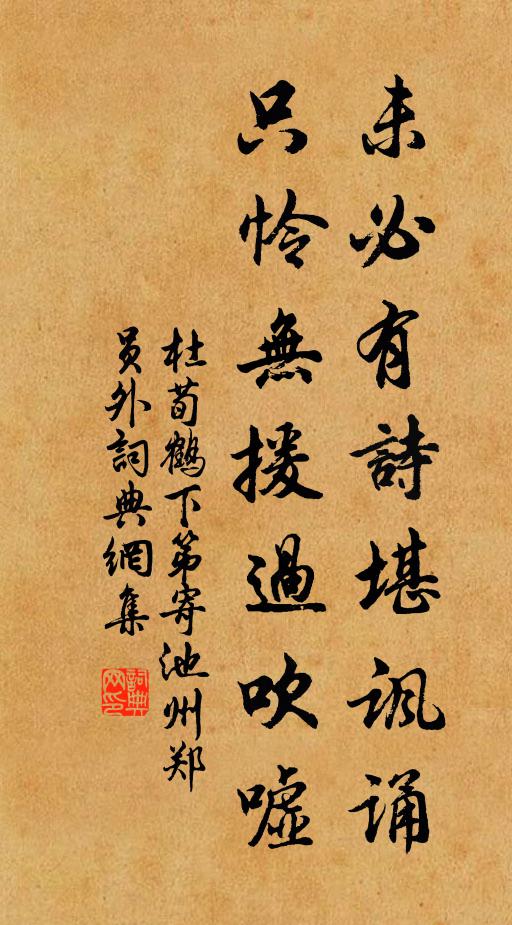 未必有詩堪諷诵
只怜無援過吹噓
杜荀鹤下第寄池州郑
员外詞典網集
詞典
网印